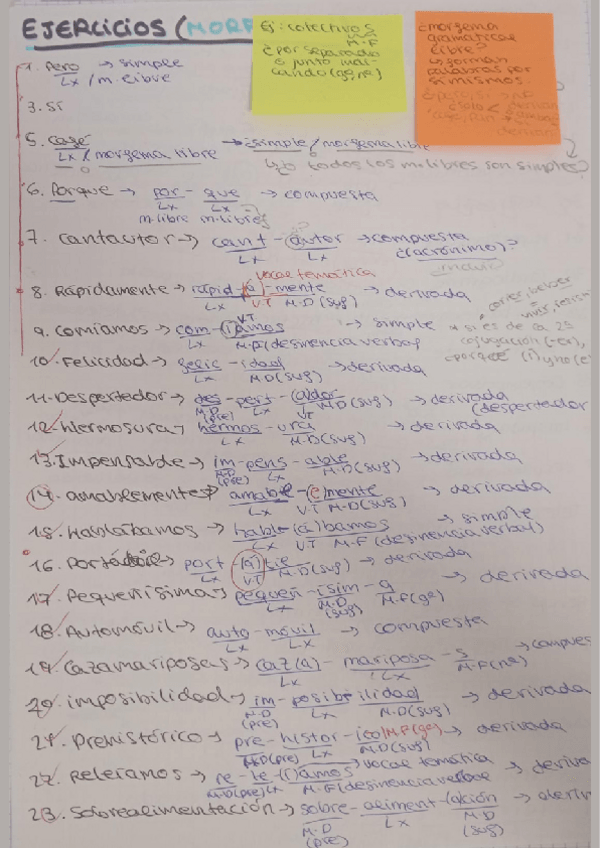 EJERCICIOS (MORF
Ej: colectivos
M.F
¿por separado
o junto mar-
cando (ge, ne)
¿morfema
gramatical
libre?
↳ forman
palabras por
sí mismos
1. Pero → simple
Lx / m. libre
3. Sí
5. Café → ¿simple / morfema libre
Lx / morfema libre
todos los m. libres son simples?
6. Porque → por - que → compuesta
Lx Lx
m. libre m. libre
7. Cantautor → cant - autor → compuesta
Lx Lx ¿(acrónimo)?
vocal temática
8. Rápidamente → rapid - (a) - mente → derivada
Lx V.T M.D (suf)
correr, beber
vivir
V.T
9. Comíamos → com - (í) amos → simple
Lx M.F (desinencia verbal)
* si es de la 2ª
conjugación (-er),
¿porqué (i) y no (e)
10. Felicidad → felic - idad → derivada
Lx M.D (suf)
11. Despertador → des - pert - (a)dor → derivada
M.D (pre) Lx VT M.D (suf) (despertador
12. Hermosura → hermos - ura → derivada
Lx M.D (suf)
13. Impensable → im - pens - able → derivada
M.D (pre) Lx M.D (suf)
14. amablemente → amabl - (e) mente → derivada
Lx V.T M.D (suf)
15. Hablábamos → habl - (á) bamos → simple
Lx V.T M.F (desinencia verbal)
16. → port - (á) til → derivada
Lx V.T M.D (suf)
17. Pequeñísima → pequeñ - ísim - a → derivada
Lx M.D (suf) M.F (ge)
18. Automóvil → auto - móvil → compuesta
Lx Lx
19. Cazamariposas → caz(a) - mariposa - s → compues
Lx Lx M.F (ne)
20. imposibilidad → im - posib - ilidad → derivada
M.D (pre) Lx M.D (suf)
21. Prehistórico → pre - histor - ico M.F (ge) → derivada
M.D (pre) Lx M.D (suf)
vocal temática
22. Releíamos → re - le - (í) amos → deriva
M.D (pre) Lx M.F (desinencia verbal
23. Sobrealimentación → sobre - aliment - (a)ción → deriv
M.D (pre) Lx M.D (suf)